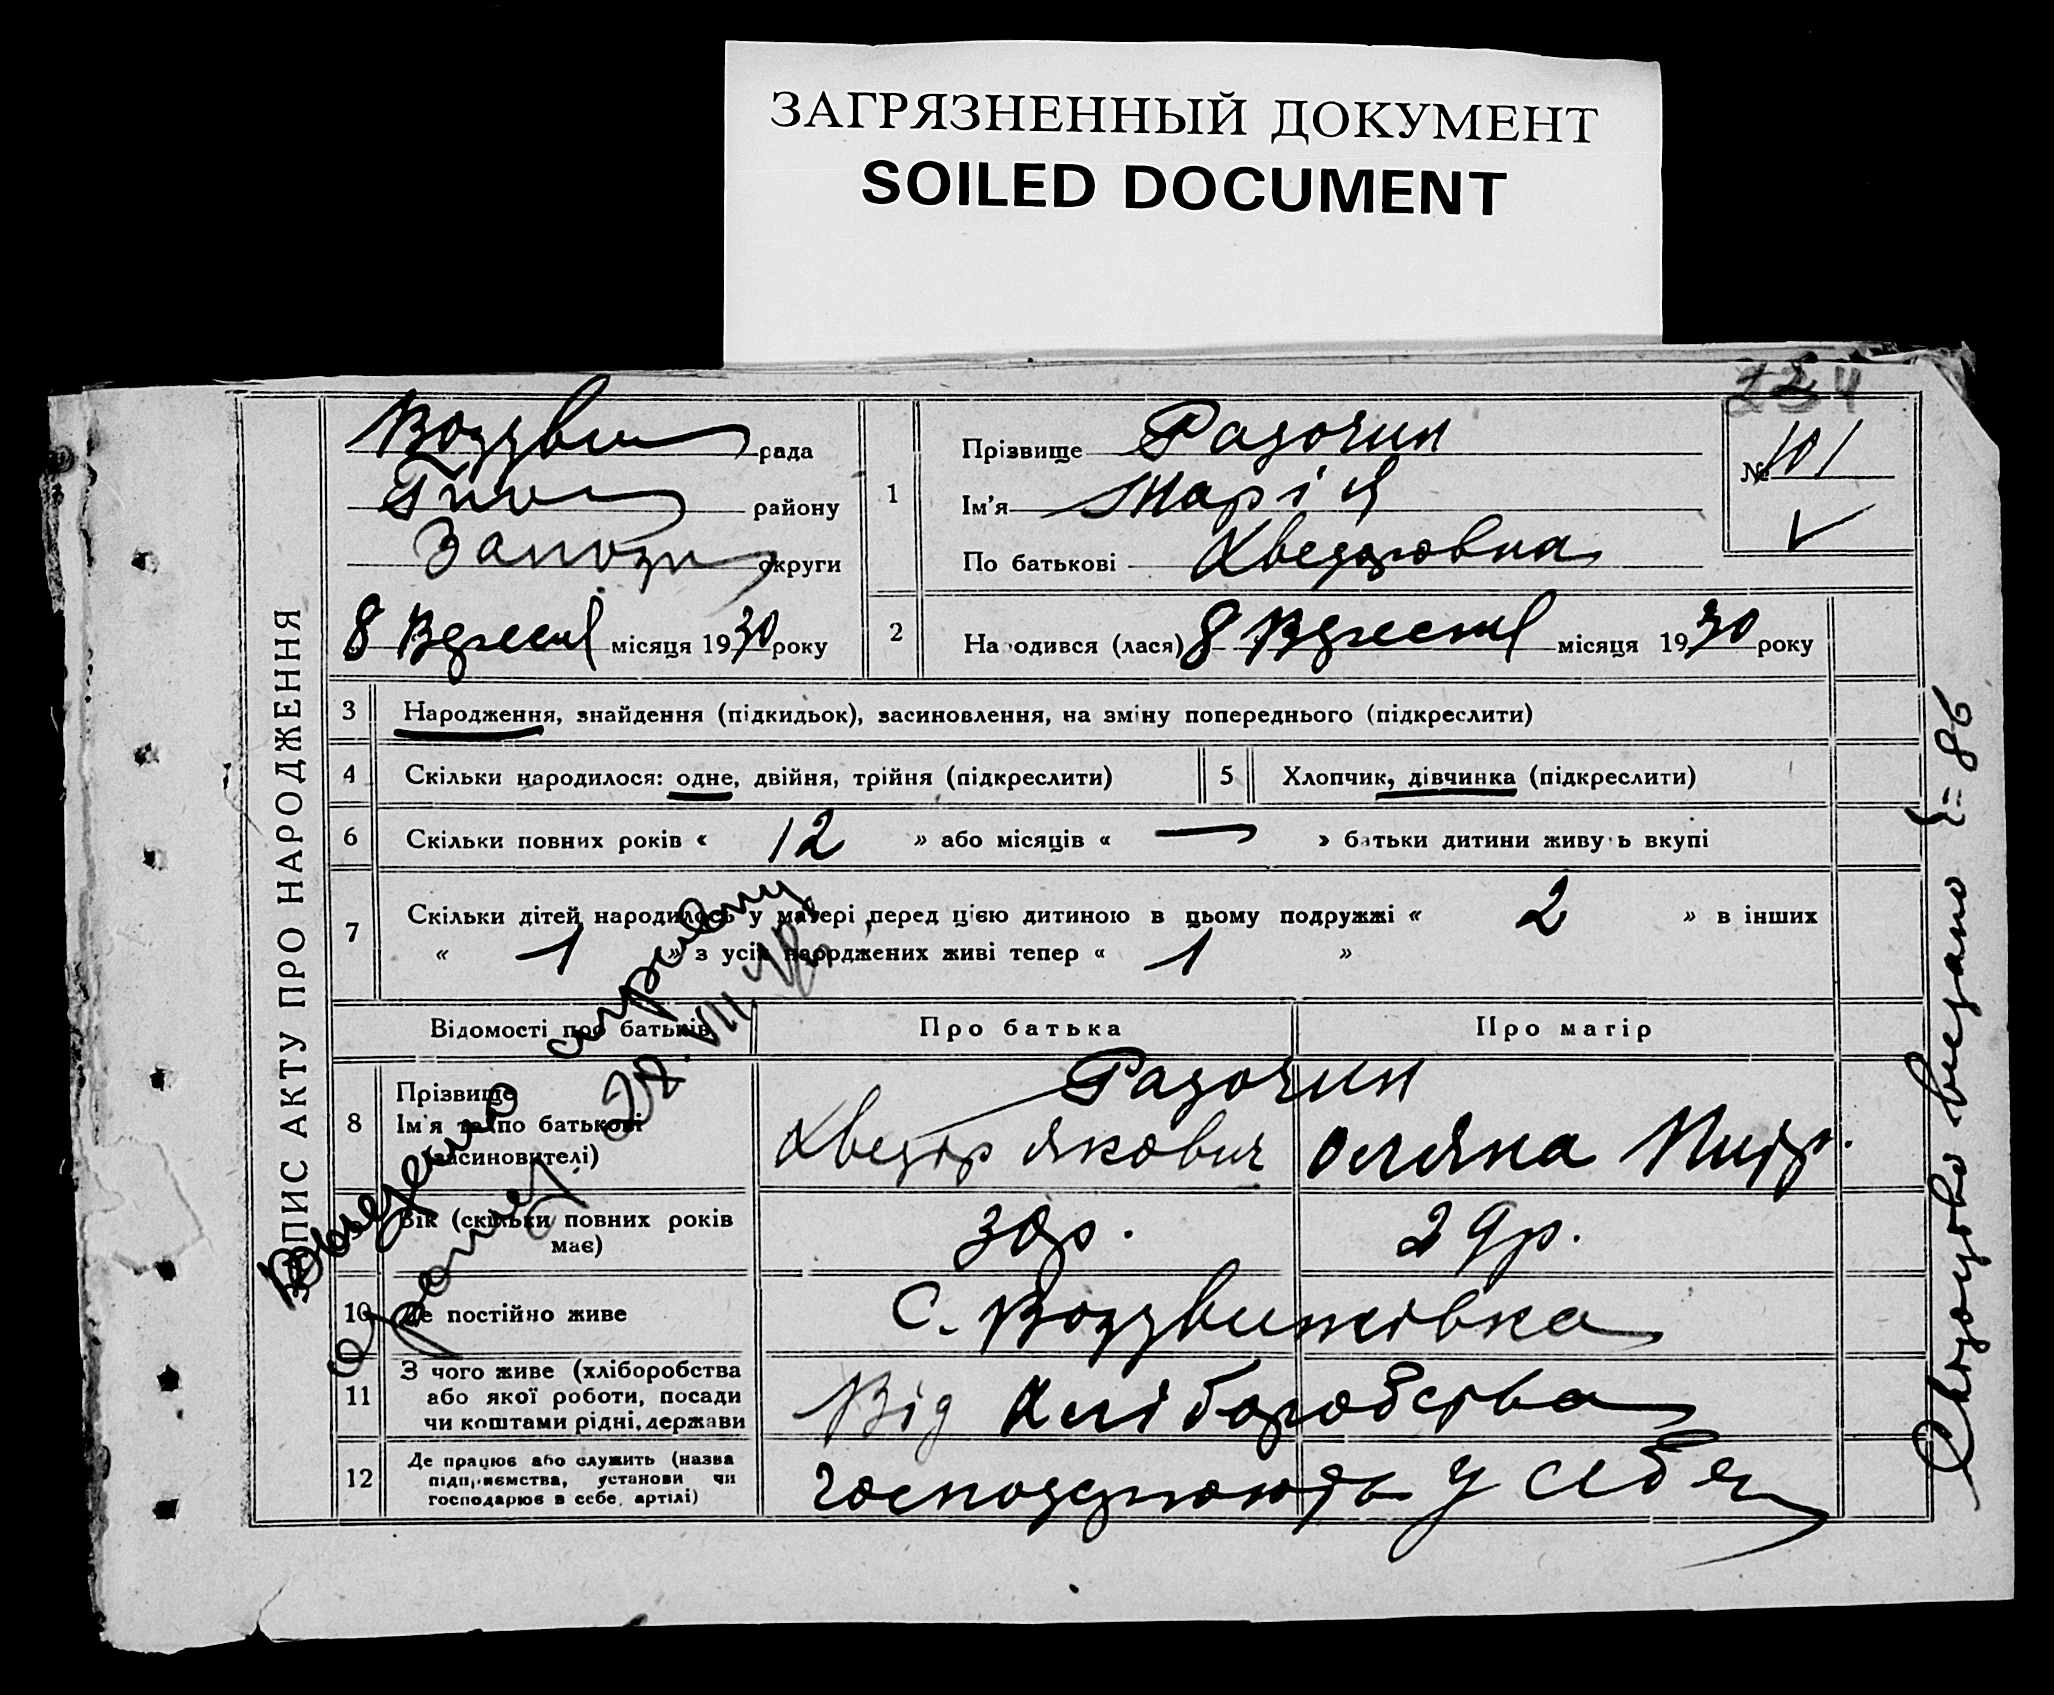 ЗАГРЯЗНЕННЫЙ ДОКУМЕНТ
SOILED DOCUMENT
ЗАПИС АКТУ ПРО НАРОДЖЕННЯ
Воздвиж рада
району
Запоріз округи
8 Вересня місяця 1930 року
1
Прізвище Разочин
Ім'я Марія
По батькові Хведоровна
№ 101
2 Народився (лася) 8 Вересня місяця 1930 року
3 Народження, знайдення (підкидьок), засиновлення, на зміну попереднього (підкреслити)
4 Скільки народилося: одне, двійня, трійня (підкреслити) 5 Хлопчик, дівчинка (підкреслити)
6 Скільки повних років « 12 » або місяців « — » батьки дитини живуть вкупі
7 Скільки дітей народилось у матері перед цією дитиною в цьому подружжі « 2 » в інших
« 1 » з усіх народжених живі тепер « 1 »
Відомості про батьків Про батька Про матір
8 Прізвище Разочин
Ім'я та по батькові
(засиновителі)
Хведір Якович
Вік (скільки повних років
має)
30р. 29р.
10 Де постійно живе С. Воздвижівка
11 З чого живе (хліборобства
або якої роботи, посади
чи коштами рідні, держави
Від хліборобства
12 Де працює або служить (назва
підприємства, установи чи
господарює в себе, артілі)
господарюють у себя
28.VII
видано